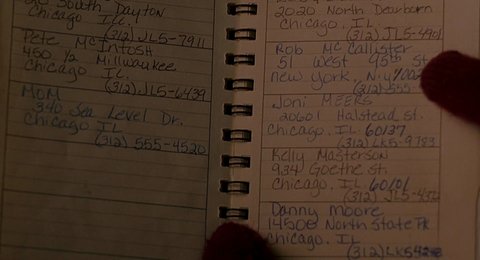 20 South Dayton
Chicago ILL.
(312) JL5-7911
Pete McIntosh
450 12 Millwaukee
Chicago IL.
(312) JL5-6439
MOM
340 Sea Level Dr.
Chicago IL
(312) 555-4520
2020 North Dearborn
Chicago, IL.
(312) JL5-4901
Rob McCallister
51 West 95th St
new york, N.y
(312) 555-
Joni MEERS
20601 Halstead st.
Chicago, IL 60137
(312) LK5-9783
Kelly Masterson
934 Goethe st.
Chicago, IL 60101
(312) JL5-
Danny Moore
1450 North State Pk
Chicago, IL
(312)